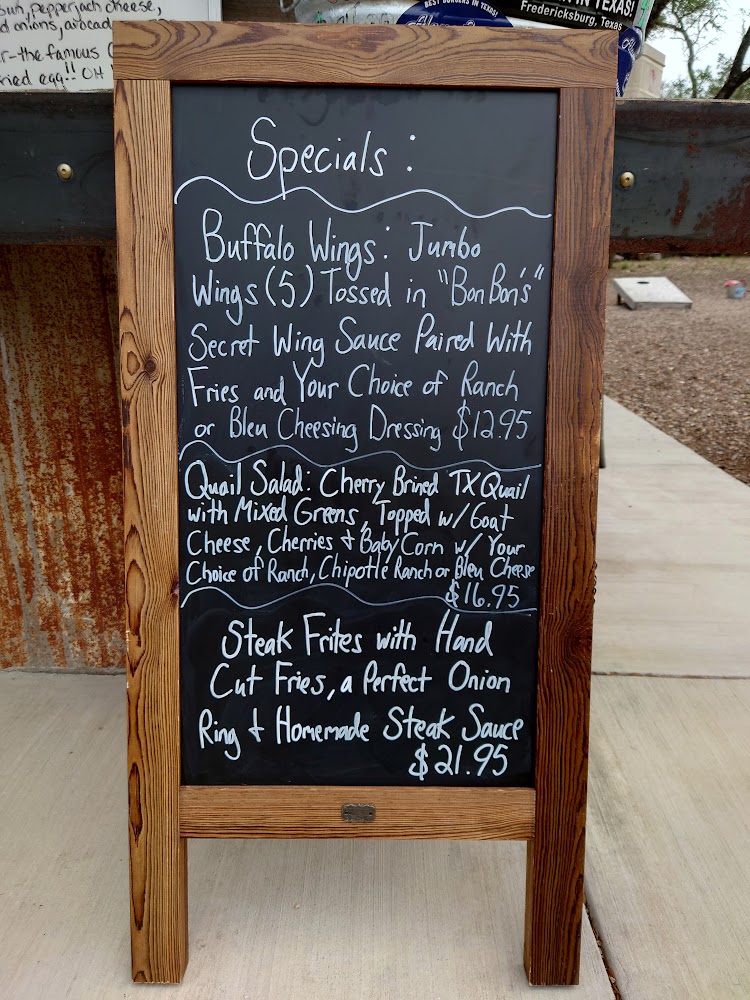 pepperjack cheese,
onions,
the famous
egg!! OH
BEST BURGERS IN TEXAS!
IN TEXAS!
Fredericksburg, Texas
Specials:
Buffalo Wings: Jumbo
Wings (5) Tossed in "BonBon's"
Secret Wing Sauce Paired With
Fries and Your Choice of Ranch
or Bleu Cheesing Dressing $12.95
Quail Salad: Cherry Brined TX Quail
with Mixed Greens, Topped w/ Goat
Cheese, Cherries & Baby Corn w/ Your
Choice of Ranch, Chipotle Ranch or Bleu Cheese
$16.95
Steak Frites with Hand
Cut Fries, a Perfect Onion
Ring & Homemade Steak Sauce
$21.95